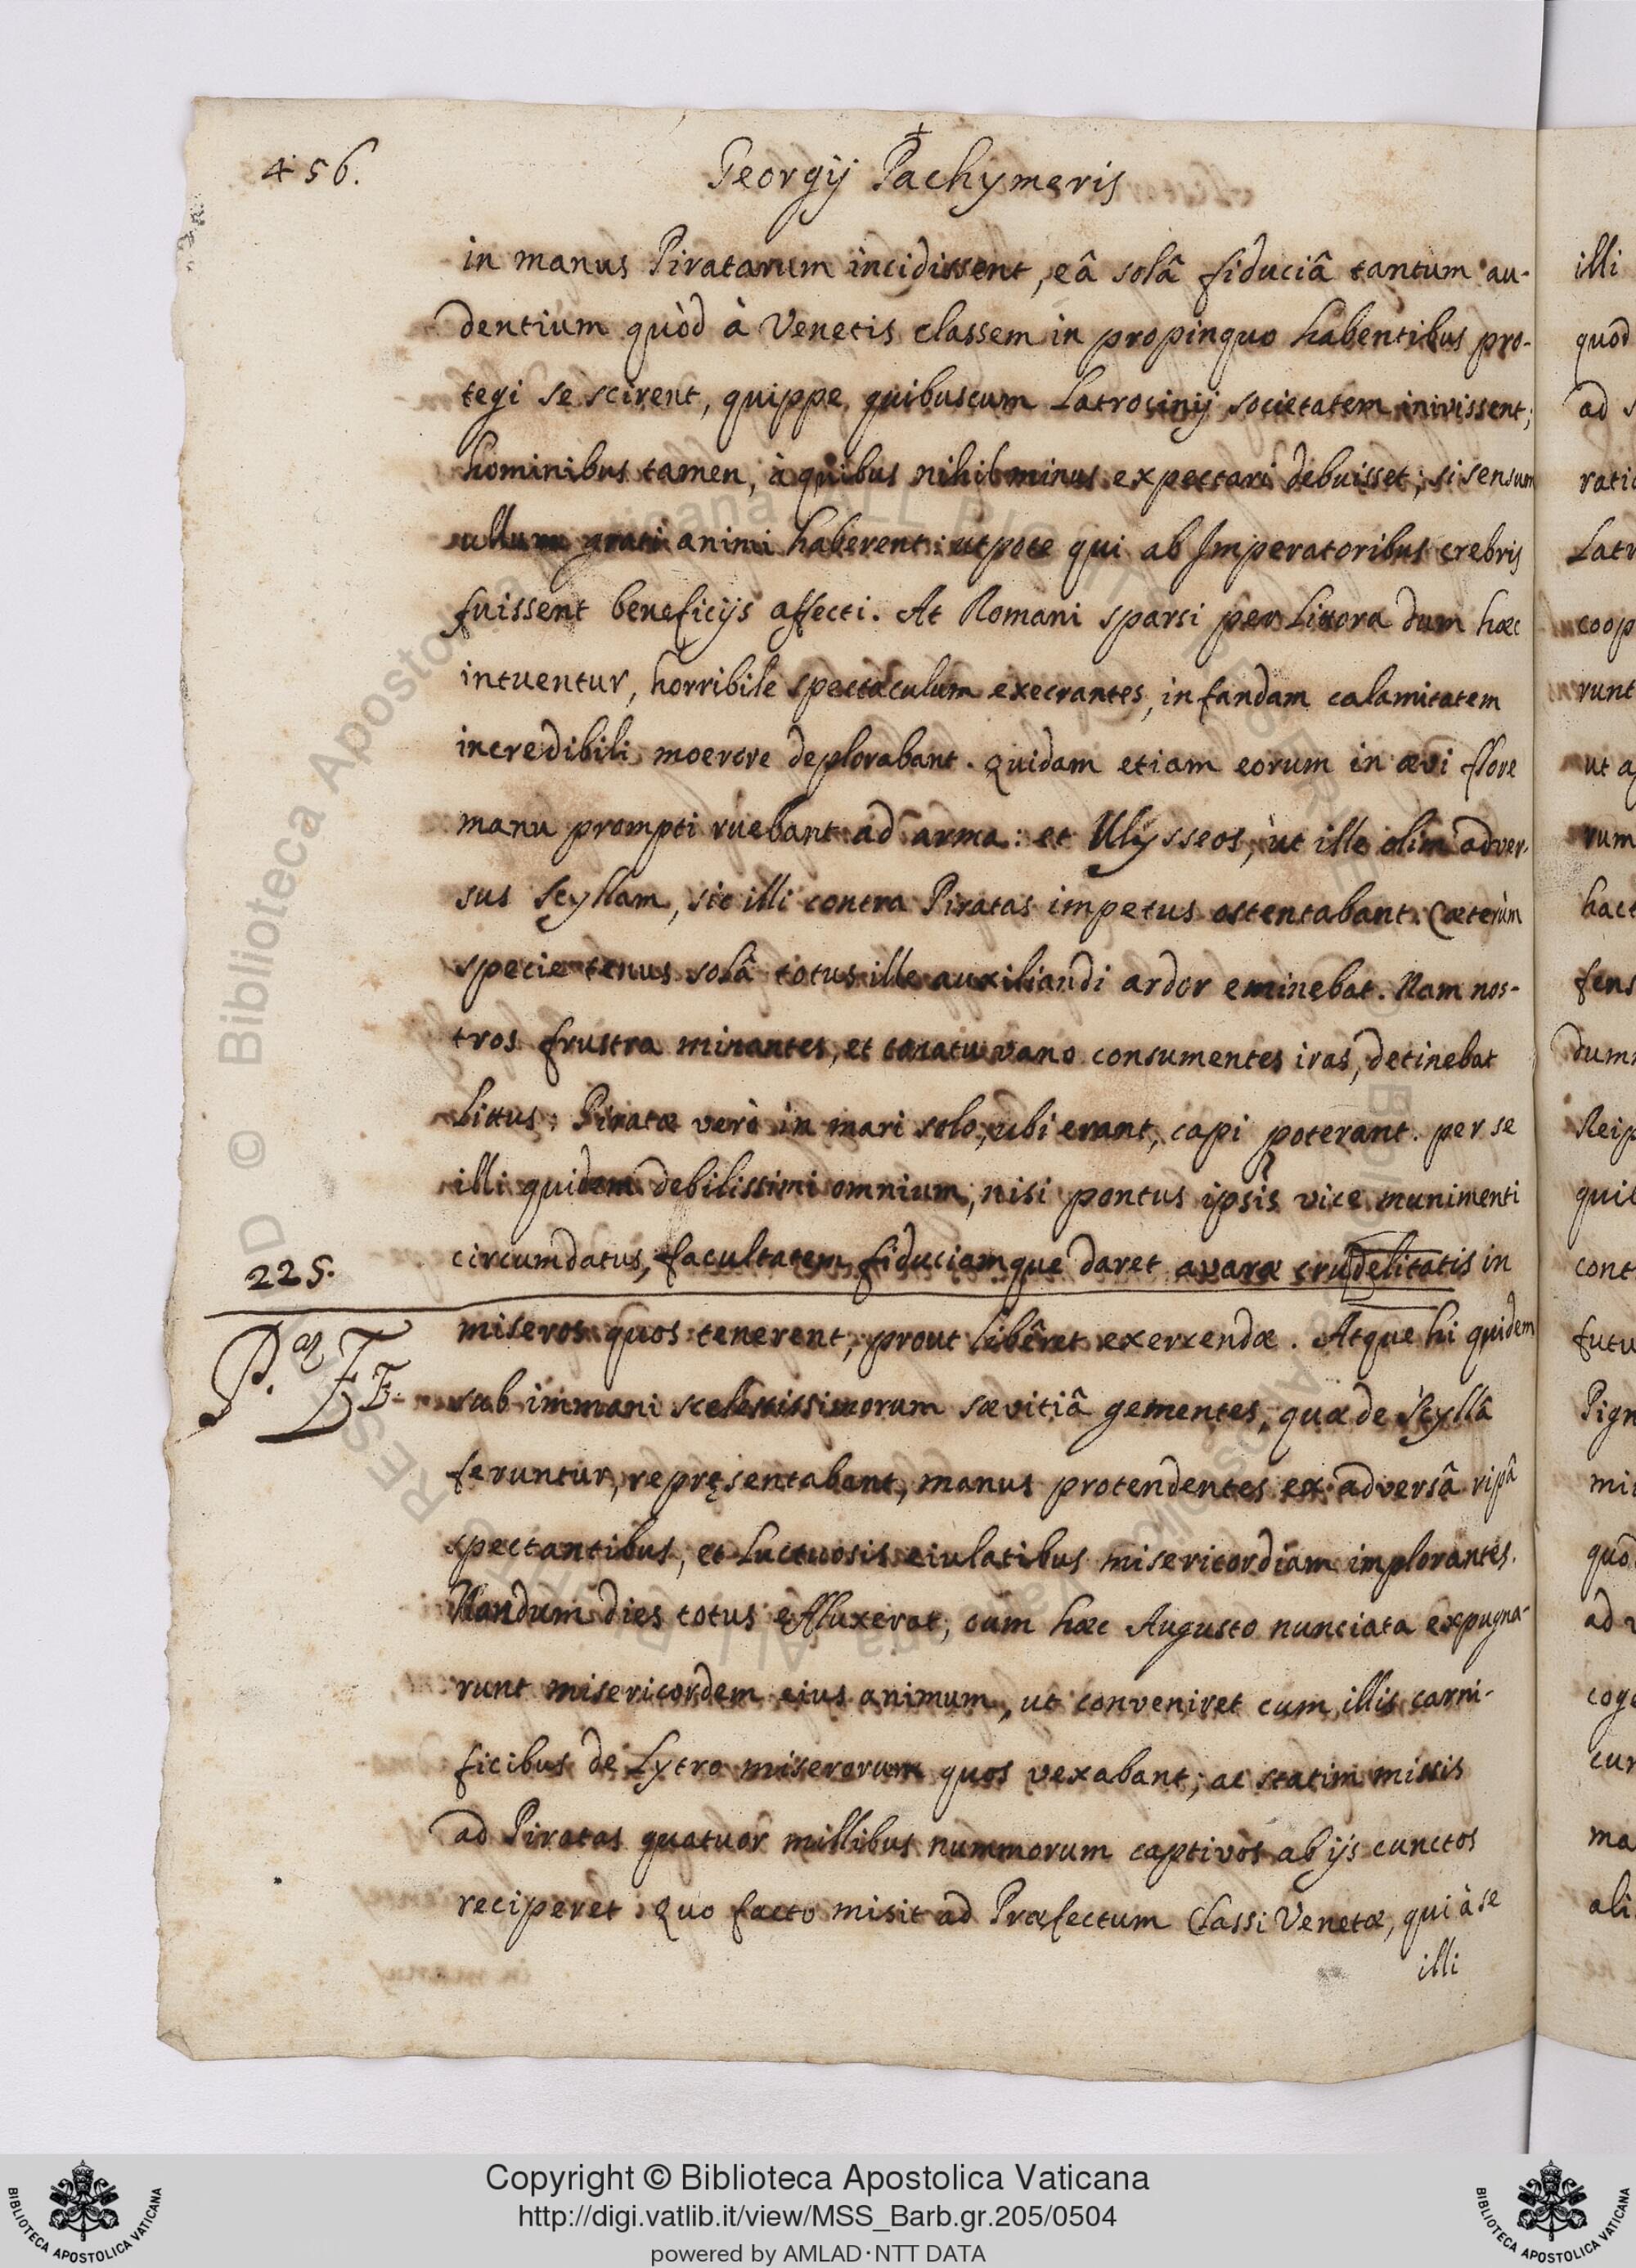 456.
Georgij Pachymeris
in manus Piratarum incidissent, eâ solâ fiduciâ tantum au-
dentium quòd à Venetis classem in propinquo habentibus pro-
tegi se scirent, quippe quibuscum Latrocinij societatem inivissent;
hominibus tamen, à quibus nihil minus expectari debuisset; si sensum
ullum grati animi haberent: utpote qui ab Imperatoribus crebris
fuissent beneficijs affecti. At Romani sparsi per Littora dum hæc
intuentur, horribile spectaculum execrantes, infandam calamitatem
incredibili moerore deplorabant. Quidam etiam eorum in ævi flore
manu prompti ruebant ad arma: et Ulysseos, ut ille olim adver-
sus Scyllam, sic illi contra Piratas impetus ostentabant. Cæterùm
specie tenus solâ totus ille auxiliandi ardor eminebat. Nam nos-
tros frustra minantes, et conatu vano consumentes iras, detinebat
Littus: Piratæ verò in mari solo, ubi erant, capi poterant. per se
illi quidem debilissimi omnium, nisi pontus ipsis vice munimenti
circumdatus, facultatem fiduciamque daret avaræ crudelitatis in
225.
miseros quos tenerent, prout libêret exercendæ. Atque hi quidem
sub immani scelestissimorum sævitiâ gementes, quæ de Scyllâ
feruntur, repręsentabant, manus protendentes ex adversâ ripâ
spectantibus, et Luctuosis eiulatibus misericordiam implorantes.
Nondum dies totus effluxerat, cum hæc Augusto nunciata expugna-
runt misericordem eius animum, ut conveniret cum illis carni-
ficibus de Lytro miserorum quos vexabant; ac statim missis
ad Piratas quatuor millibus nummorum captivos ab ijs cunctos
reciperet. Quo facto misit ad Præfectum Classi Venetæ, qui à se
illi
illi
quod
ad
Latr
coop
runt
ut
rum
hact
fens
cont
futu
Pign
ad
Copyright © Biblioteca Apostolica Vaticana
http://digi.vatlib.it/view/MSS_Barb.gr.205/0504
powered by AMLAD·NTT DATA
BIBLIOTECA APOSTOLICA VATICANA
BIBLIOTECA APOSTOLICA VATICANA